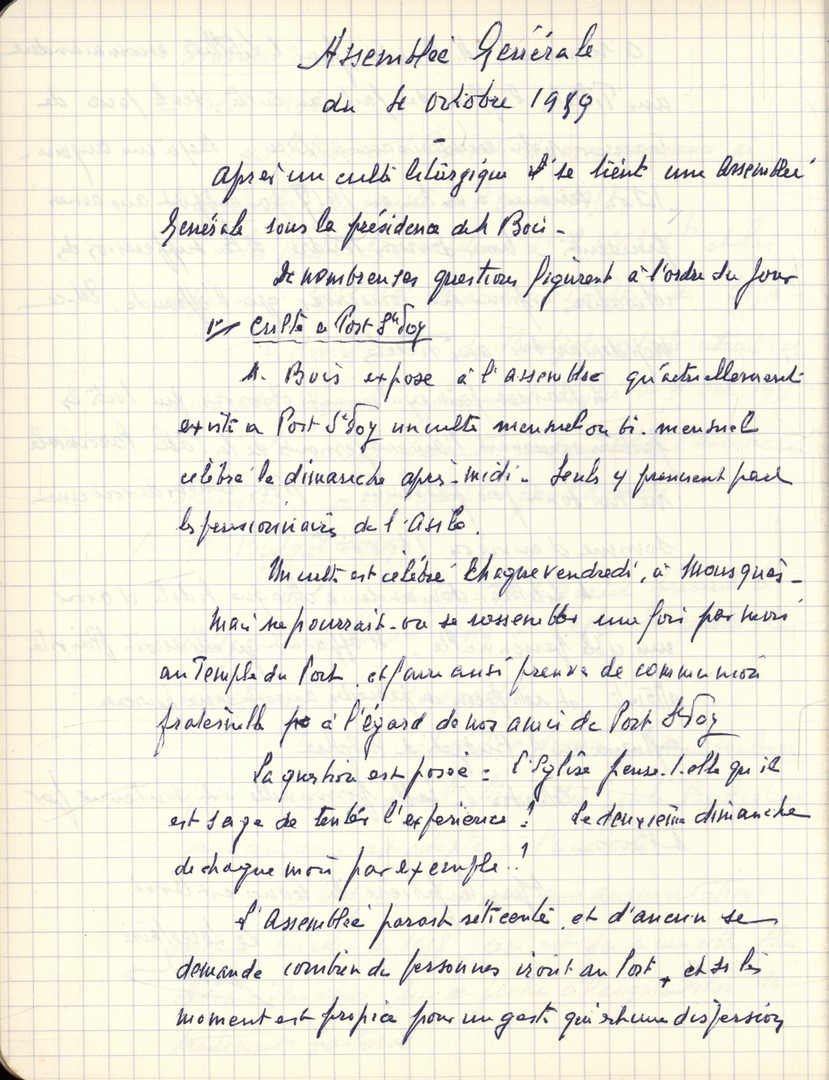 Assemblée Générale
du 1e octobre 1989
Après un culte liturgique se tient une Assemblée
Générale sous la présidence de M Bois -
De nombreuses questions figurent à l'ordre du jour
1°/ Culte a Port Ste Foy
M. Bois expose à l'assemblée qu'actuellement
existe a Port Ste Foy un culte mensuel ou bi-mensuel
célébré le dimanche après-midi - Seuls y prennent part
les pensionnaires de l'Asile.
Un culte est célébré chaque vendredi, à
Mais ne pourrait-on se rassembler une fois par mois
au Temple du Port, et faire ainsi preuve de communion
fraternelle à l'égard de nos amis de Port Ste Foy
La question est posée : l'Eglise pense-t-elle qu'il
est sage de tenter l'expérience ? Le deuxième dimanche
de chaque mois par exemple ?
L'Assemblée parait réticente, et d'aucun se
demande combien de personnes iront au Port, et si le
moment est propice pour un geste qui est une dispersion